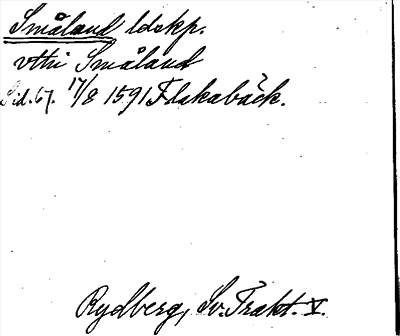 Småland ldskp.
vtti Småland
Sid. 67. 17/8 1591 Flakabäck.
Rydberg, Sv. Trakt. V.